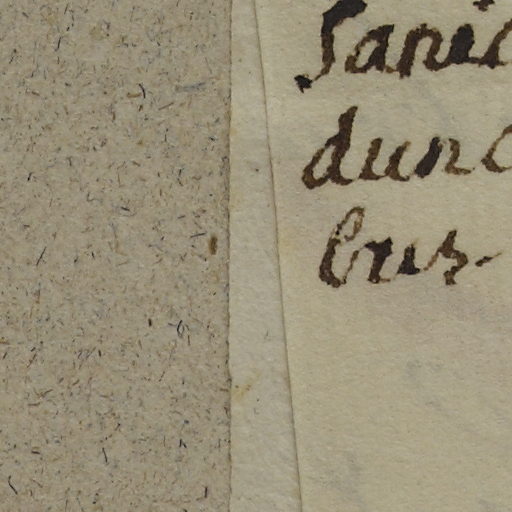 Sanic
dunc
bus.